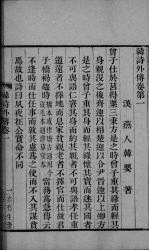 韓詩外傳卷第一
漢 燕人韓嬰著
曾子仕於莒得粟三秉方是之時曾子重其祿而輕其
身親沒之後齊迎以相楚迎以令尹晉迎以上卿方
是之時曾子重其身而輕其祿懷其寶而迷其國者
不可與語仁窘其身而約其親者不可與語孝任重
道遠者不擇地而息家貧親老者不擇官而仕故君
子橋褐趨時當務為急傳云
不逢時而仕任事而敦其慮為之使而不入其謀貧
焉故也詩曰夙夜在公實命不同